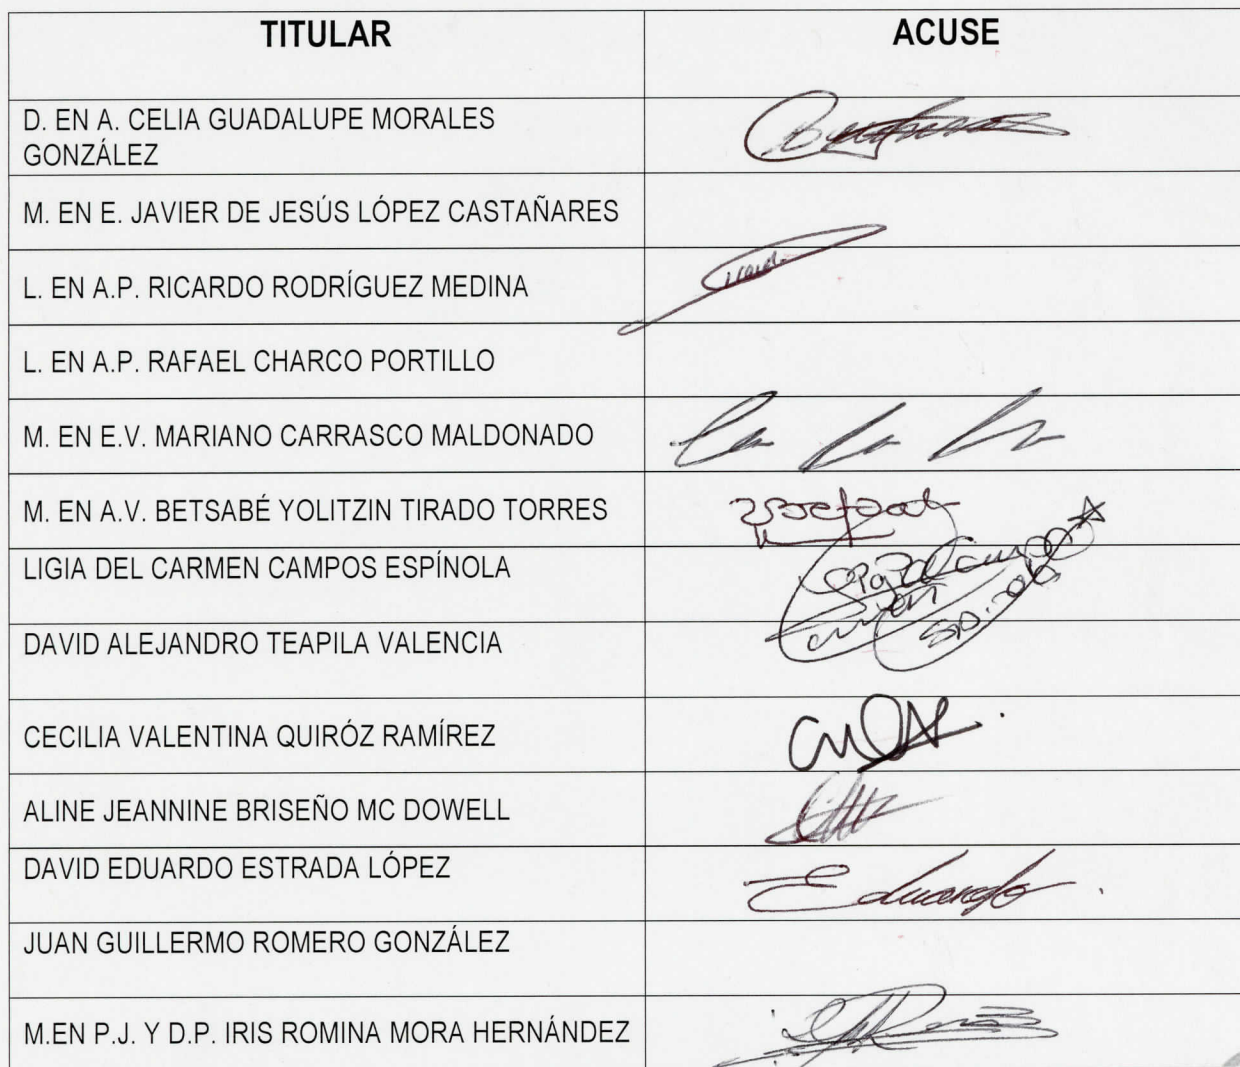 TITULAR
ACUSE
D. EN A. CELIA GUADALUPE MORALES
GONZÁLEZ
M. EN E. JAVIER DE JESÚS LÓPEZ CASTAÑARES
L. EN A.P. RICARDO RODRÍGUEZ MEDINA
L. EN A.P. RAFAEL CHARCO PORTILLO
M. EN E.V. MARIANO CARRASCO MALDONADO
M. EN A.V. BETSABÉ YOLITZIN TIRADO TORRES
LIGIA DEL CARMEN CAMPOS ESPÍNOLA
DAVID ALEJANDRO TEAPILA VALENCIA
CECILIA VALENTINA QUIRÓZ RAMÍREZ
ALINE JEANNINE BRISEÑO MC DOWELL
DAVID EDUARDO ESTRADA LÓPEZ
Eduardo
JUAN GUILLERMO ROMERO GONZÁLEZ
M.EN P.J. Y D.P. IRIS ROMINA MORA HERNÁNDEZ